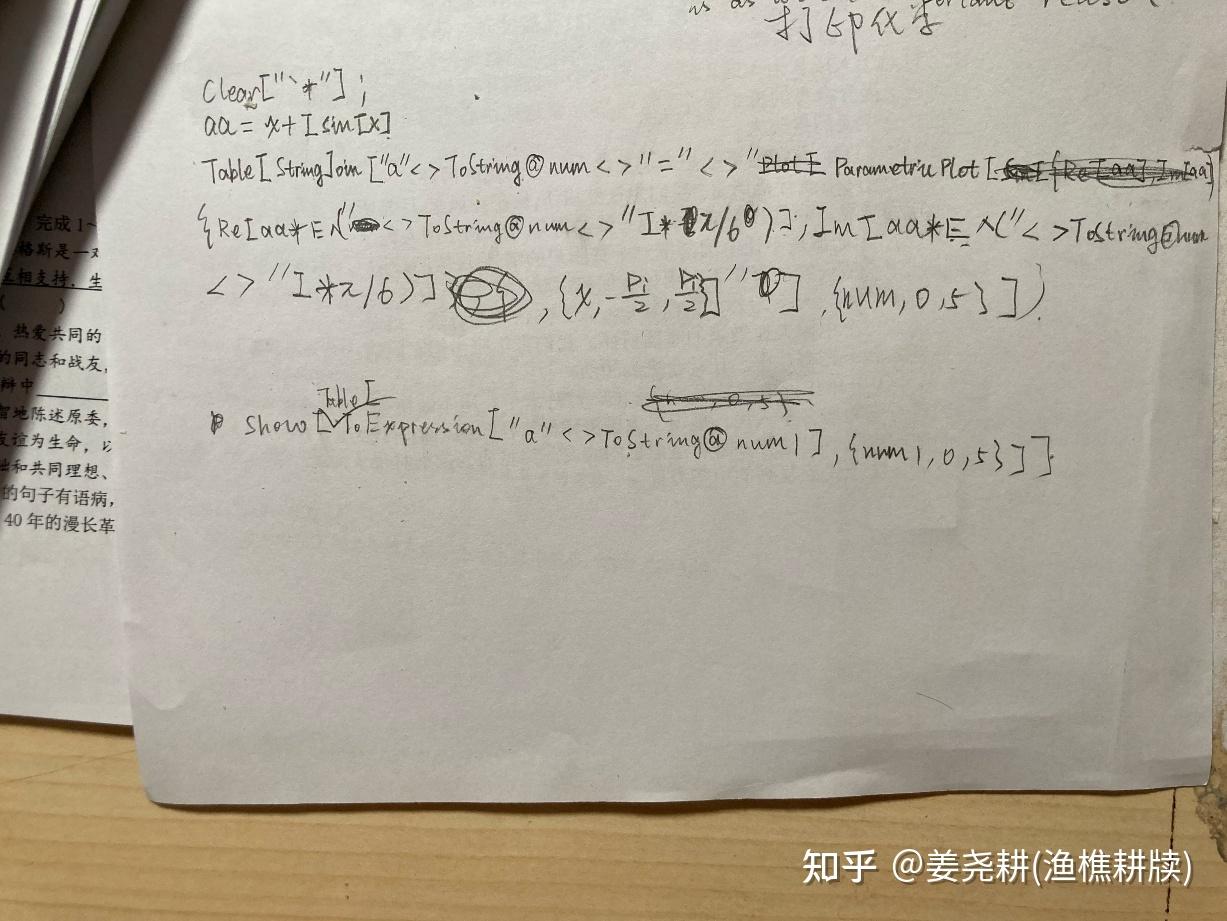 打印化学
Clear["`*"];
aa = x+I sin[x]
Table[StringJoin["a"<>ToString@num<>"="<>"ParametricPlot[
{Re[aa*E^("<>ToString@num<>"I*π/6)], Im[aa*E^("<>ToString@num
<>"I*π/6)]}, {x, -Pi/2, Pi/2}]"], {num, 0, 5}])
Show[Table[ToExpression["a"<>ToString@num1], {num1, 0, 5}]]
完成1~
格斯是一
互相支持,生
( )
热爱共同的
的同志和战友,
辩中
智地陈述原委,
友谊为生命,以
和共同理想、
的句子有语病,
40年的漫长革
知乎 @姜尧耕(渔樵耕牍)